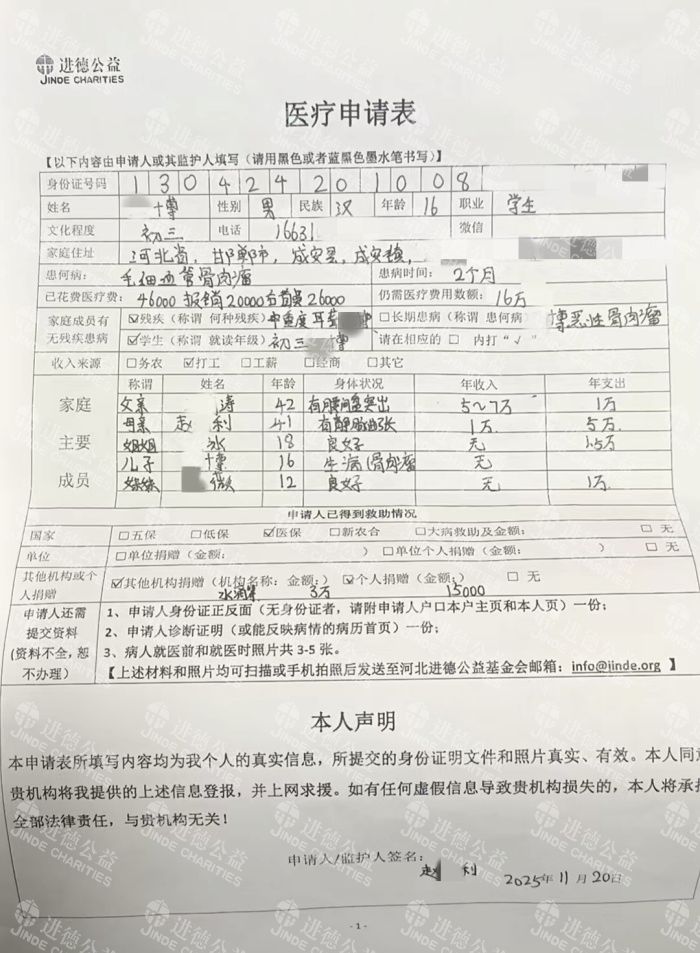 进德公益
JINDE CHARITIES
医疗申请表
【以下内容由申请人或其监护人填写（请用黑色或者蓝黑色墨水笔书写）】
身份证号码 130424201008
姓名 博 性别 男 民族 汉 年龄 16 职业 学生
文化程度 初三 电话 16631 微信
家庭住址 河北省，邯郸市，成安县，成安镇，
患何病： 毛细血管骨肉瘤 患病时间： 2个月
已花费医疗费： 46000 报销20000自费26000 仍需医疗费用数额： 16万
家庭成员有 ☑残疾（称谓 何种残疾） 中重度耳 □长期患病（称谓 患何病 博恶性骨肉瘤
无残疾患病 ☑学生（称谓 就读年级） 初三 博 请在相应的 □ 内打“√”
收入来源 □务农 ☑打工 □工薪 □经商 □其它
家庭主要成员 称谓 姓名 年龄 身体状况 年收入 年支出
父亲 涛 42 有腰间盘突出 5~7万 1万
母亲 赵 利 41 有静脉曲张 1万 5万
姐姐 冰 18 良好 无 1.5万
儿子 博 16 生病（骨肉瘤 无
妹妹 12 良好 无 1万
申请人已得到救助情况
国家 □五保 □低保 ☑医保 □新农合 □大病救助及金额： □ 无
单位 □单位捐赠（金额： ） □单位个人捐赠（金额： ） □ 无
其他机构或个人捐赠 ☑其他机构捐赠（机构名称：金额：） ☑个人捐赠（金额：） □ 无
水滴筹 3万 15000
申请人还需提交资料（资料不全，恕不办理）
1、申请人身份证正反面（无身份证者，请附申请人户口本户主页和本人页）一份；
2、申请人诊断证明（或能反映病情的病历首页）一份；
3、病人就医前和就医时照片共 3-5 张。
【上述材料和照片均可扫描或手机拍照后发送至河北进德公益基金会邮箱：info@jinde.org 】
本人声明
本申请表所填写内容均为我个人的真实信息，所提交的身份证明文件和照片真实、有效。本人同意
贵机构将我提供的上述信息登报，并上网求援。如有任何虚假信息导致贵机构损失的，本人将承担
全部法律责任，与贵机构无关！
申请人/监护人签名：
赵 利 2025年11月20日
- 1 -